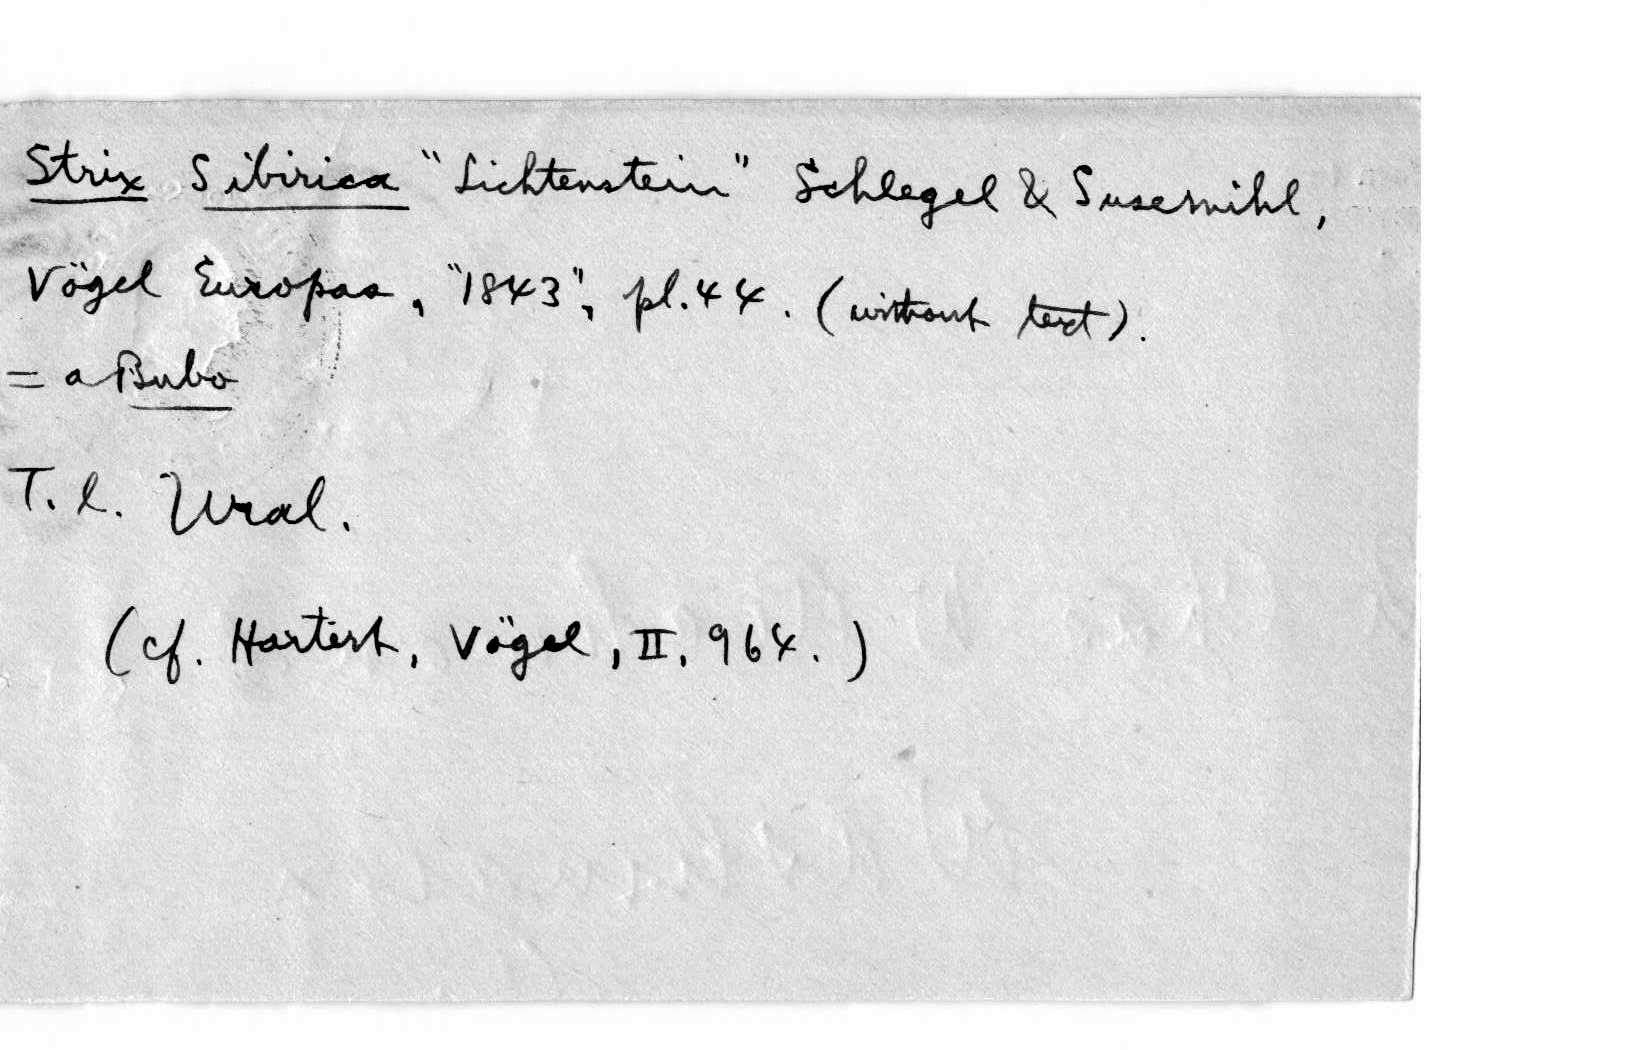 Strix Sibirica "Lichtenstein" Schlegel & Susemihl,
Vögel Europas, "1843", pl. 44. (without text).
= a Bubo
T. l. Ural.
(cf. Hartert, Vögel, II, 964.)